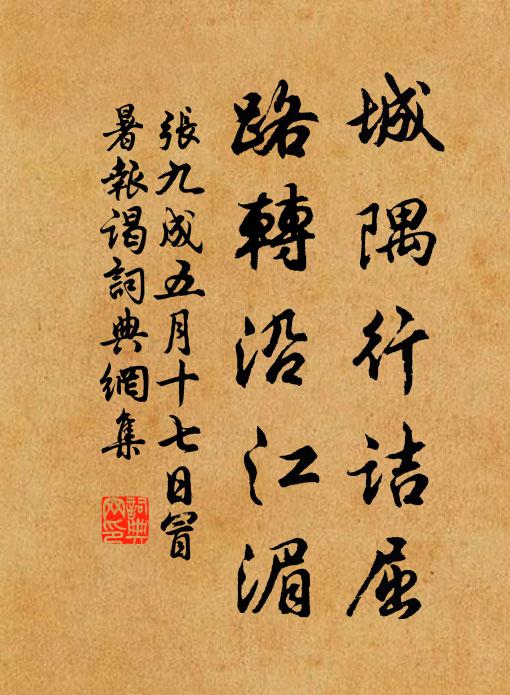 城隅行詰屈
路轉沿江湄
張九成五月十七日冒
暑報謁詞典網集
詞典
网印